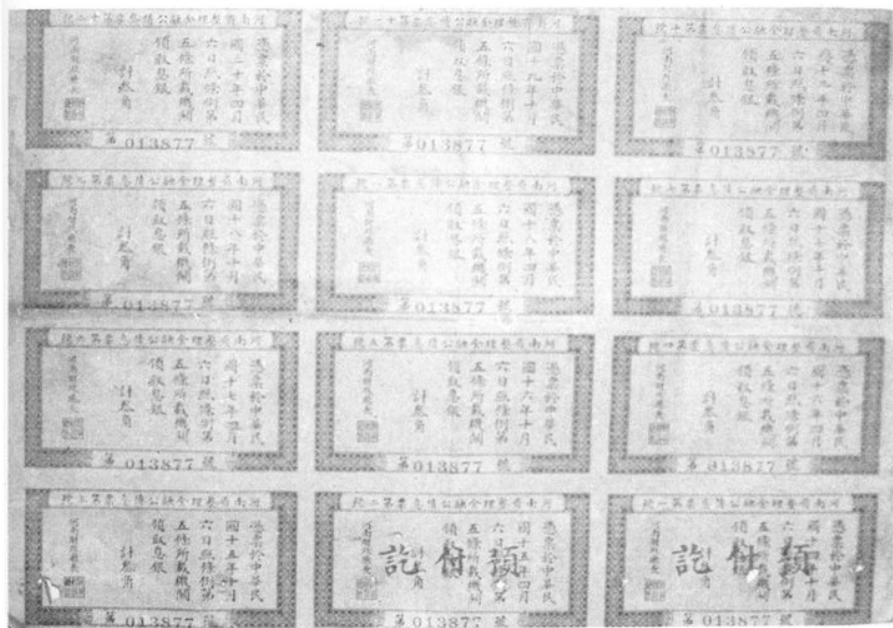 河南省整理金融公債息票第十號
憑票於中華民
國十九年四月
六日照條例第
五條所載機關
領取息銀
計叁角
河南財政廳長
第 013877 號
河南省整理金融公債息票第十一號
憑票於中華民
國十九年十月
六日照條例第
五條所載機關
領取息銀
計叁角
河南財政廳長
第 013877 號
河南省整理金融公債息票第十二號
憑票於中華民
國二十年四月
六日照條例第
五條所載機關
領取息銀
計叁角
河南財政廳長
第 013877 號
河南省整理金融公債息票第七號
憑票於中華民
國十七年十月
六日照條例第
五條所載機關
領取息銀
計叁角
河南財政廳長
第 013877 號
河南省整理金融公債息票第八號
憑票於中華民
國十八年四月
六日照條例第
五條所載機關
領取息銀
計叁角
河南財政廳長
第 013877 號
河南省整理金融公債息票第九號
憑票於中華民
國十八年十月
六日照條例第
五條所載機關
領取息銀
計叁角
河南財政廳長
第 013877 號
河南省整理金融公債息票第四號
憑票於中華民
國十六年四月
六日照條例第
五條所載機關
領取息銀
計叁角
河南財政廳長
第 013877 號
河南省整理金融公債息票第五號
憑票於中華民
國十六年十月
六日照條例第
五條所載機關
領取息銀
計叁角
河南財政廳長
第 013877 號
河南省整理金融公債息票第六號
憑票於中華民
國十七年四月
六日照條例第
五條所載機關
領取息銀
計叁角
河南財政廳長
第 013877 號
河南省整理金融公債息票第一號
憑票於中華民
國十四年十月
六日照條例第
五條所載機關
領取息銀
計叁角
河南財政廳長
預付訖
第 013877 號
河南省整理金融公債息票第二號
憑票於中華民
國十五年四月
六日照條例第
五條所載機關
領取息銀
計叁角
河南財政廳長
預付訖
第 013877 號
河南省整理金融公債息票第三號
憑票於中華民
國十五年十月
六日照條例第
五條所載機關
領取息銀
計叁角
河南財政廳長
第 013877 號